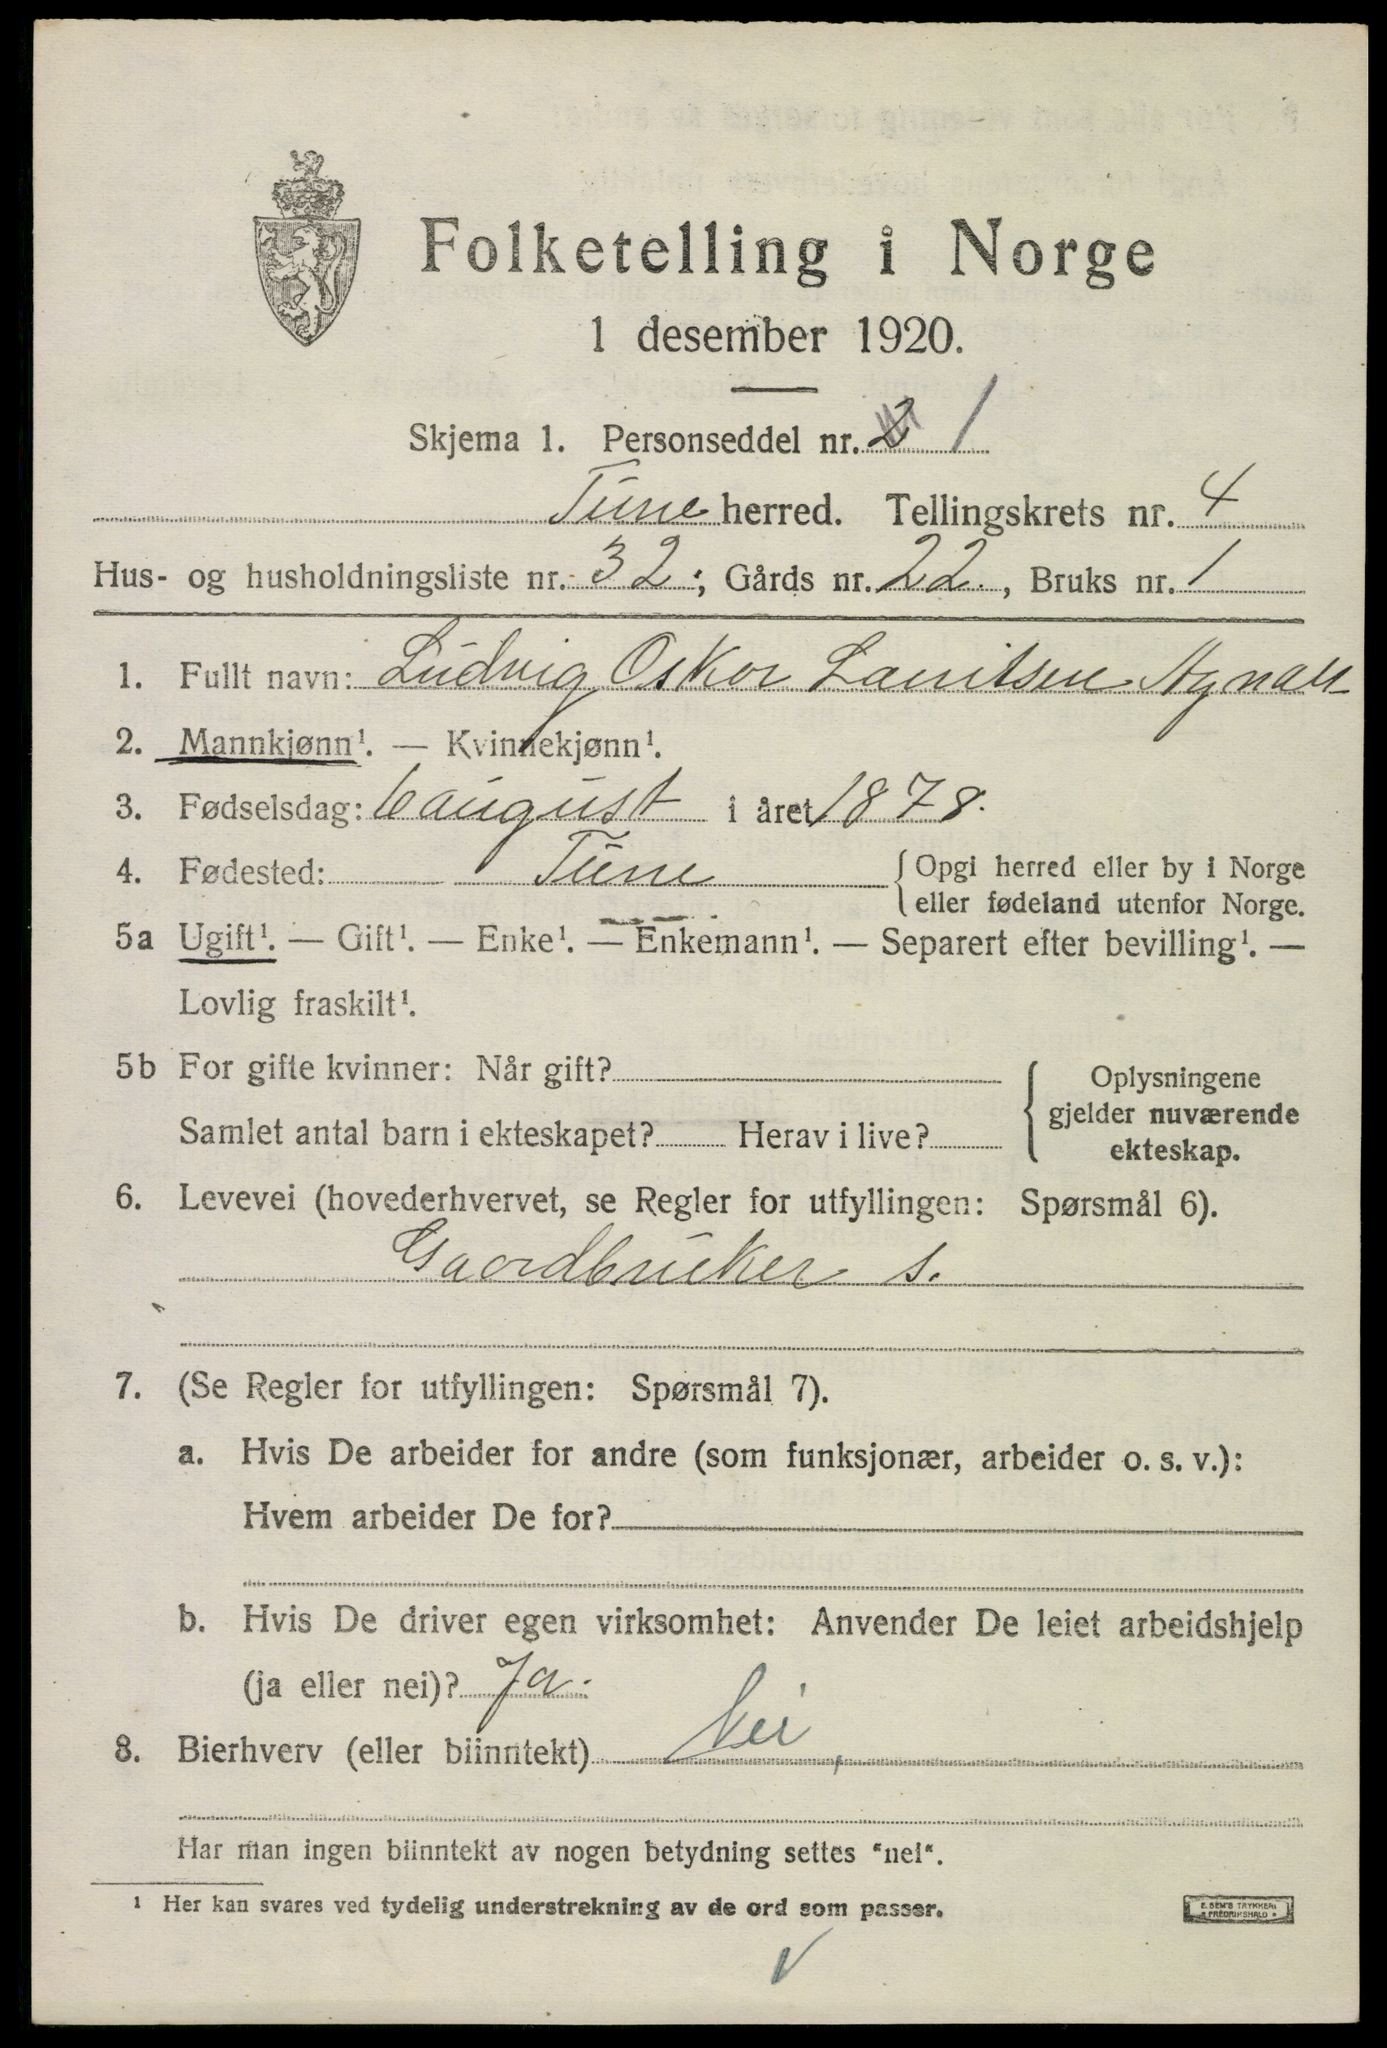 Folketelling i Norge
1 desember 1920.
Skjema 1. Personseddel nr. 2 1
Tune herred. Tellingskrets nr. 4
Hus- og husholdningsliste nr. 32; Gårds nr. 22, Bruks nr. 1
1. Fullt navn: Ludvig Oskar Lauritsen
2. Mannkjønn¹. — Kvinnekjønn¹.
3. Fødselsdag: 6 august i året 1878.
4. Fødested: Tune { Opgi herred eller by i Norge
eller fødeland utenfor Norge.
5a Ugift¹. — Gift¹. — Enke¹. — Enkemann¹. — Separert efter bevilling¹. —
Lovlig fraskilt¹.
5b For gifte kvinner: Når gift? { Oplysningene
gjelder nuværende
Samlet antal barn i ekteskapet? Herav i live?
ekteskap.
6. Levevei (hovederhvervet, se Regler for utfyllingen: Spørsmål 6).
Gaardbruker s.
7. (Se Regler for utfyllingen: Spørsmål 7).
a. Hvis De arbeider for andre (som funksjonær, arbeider o. s. v.):
Hvem arbeider De for?
b. Hvis De driver egen virksomhet: Anvender De leiet arbeidshjelp
(ja eller nei)? Ja.
8. Bierhverv (eller biinntekt) Nei,
Har man ingen biinntekt av nogen betydning settes "nei".
1 Her kan svares ved tydelig understrekning av de ord som passer.
E. SEM'S TRYKKERI
FREDRIKSHALD